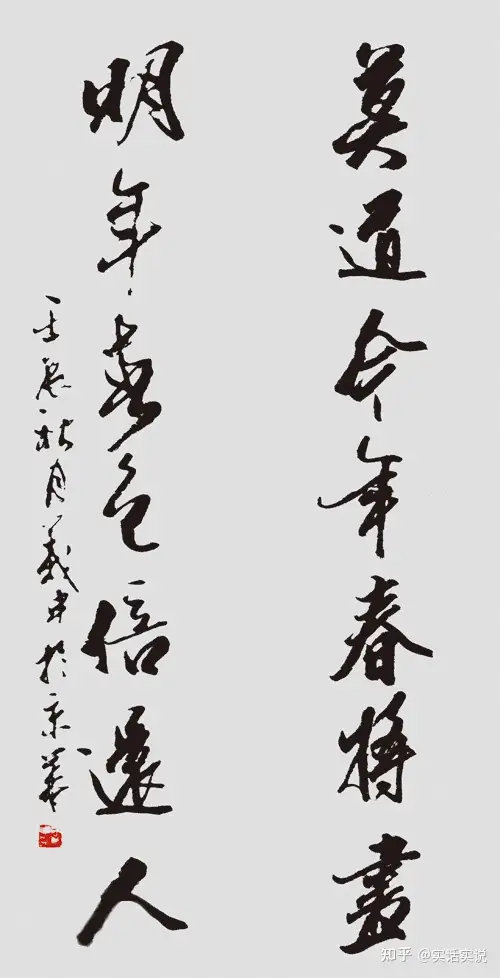 莫道今年春將盡
明年春色倍還人
壬辰秋月義於京華
知乎 @实话实说